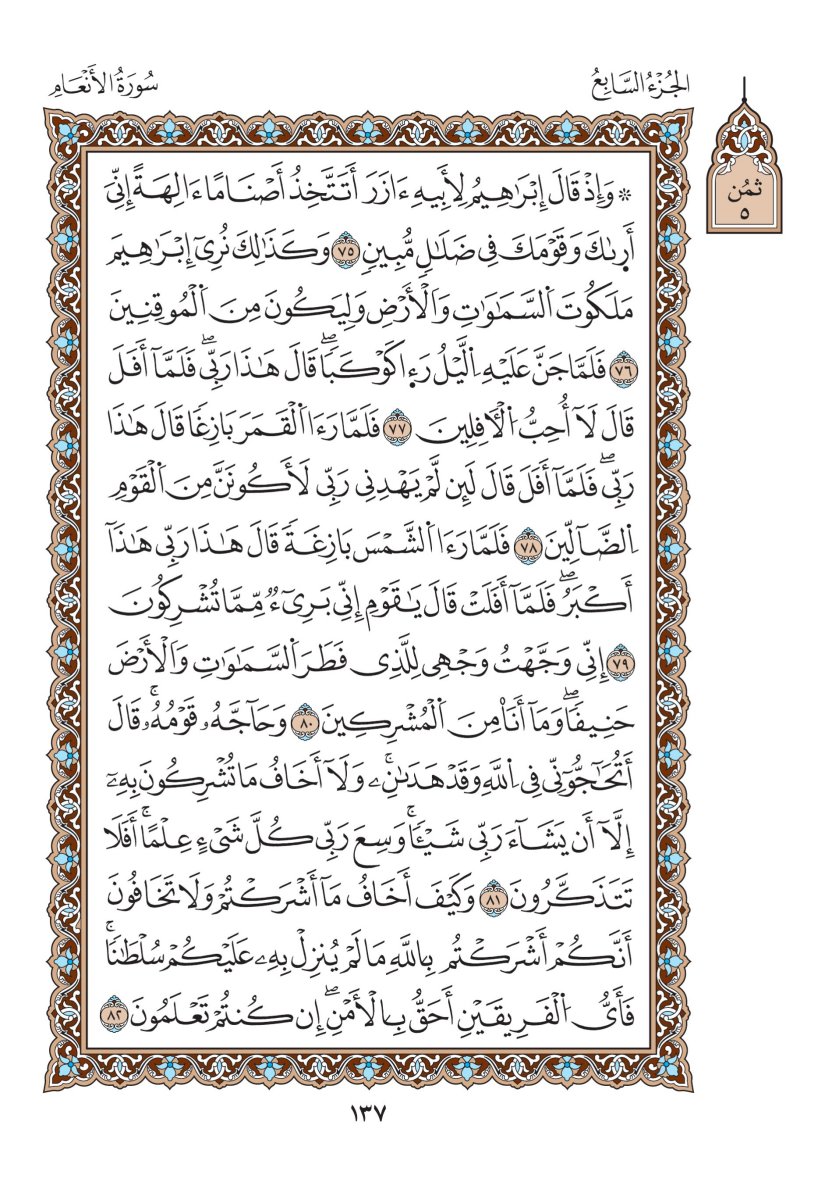 الجُزْءُ السَّابِعُ
سُورَةُ الأَنْعَامِ
ثُمُن
٥
* وَإِذْ قَالَ إِبْرَٰهِيمُ لِأَبِيهِ ءَازَرَ أَتَتَّخِذُ أَصْنَامًا ءَالِهَةً إِنِّيَ
أَر۪ىٰكَ وَقَوْمَكَ فِي ضَلَٰلٖ مُّبِينٖ ٧٥ وَكَذَٰلِكَ نُرِيٓ إِبْرَٰهِيمَ
مَلَكُوتَ اَ۬لسَّمَٰوَٰتِ وَالْأَرْضِ وَلِيَكُونَ مِنَ اَ۬لْمُوقِنِينَ
٧٦ فَلَمَّا جَنَّ عَلَيْهِ اِ۬لَّيْلُ رَء۪ا كَوْكَبٗاۖ قَالَ هَٰذَا رَبِّيۖ فَلَمَّآ أَفَلَ
قَالَ لَآ أُحِبُّ اُ۬لْأٓفِلِينَ ٧٧ فَلَمَّا رَءَا اَ۬لْقَمَرَ بَازِغٗا قَالَ هَٰذَا
رَبِّيۖ فَلَمَّآ أَفَلَ قَالَ لَئِن لَّمْ يَهْدِنِي رَبِّي لَأَكُونَنَّ مِنَ اَ۬لْقَوْمِ
اِ۬لضَّآلِّينَ ٧٨ فَلَمَّا رَءَا اَ۬لشَّمْسَ بَازِغَةٗ قَالَ هَٰذَا رَبِّي هَٰذَآ
أَكْبَرُۖ فَلَمَّآ أَفَلَتْ قَالَ يَٰقَوْمِ إِنِّي بَرِيٓءٞ مِّمَّا تُشْرِكُونَ
٧٩ إِنِّي وَجَّهْتُ وَجْهِي لِلَّذِي فَطَرَ اَ۬لسَّمَٰوَٰتِ وَالْأَرْضَ
حَنِيفٗاۖ وَمَآ أَنَا۠ مِنَ اَ۬لْمُشْرِكِينَ ٨٠ وَحَآجَّهُۥ قَوْمُهُۥۚ قَالَ
أَتُحَٰٓجُّوٓنِّي فِي اِ۬للَّهِ وَقَدْ هَدَىٰنِۦۚ وَلَآ أَخَافُ مَا تُشْرِكُونَ بِهِۦٓ
إِلَّآ أَن يَشَآءَ رَبِّي شَيْـٔٗاۚ وَسِعَ رَبِّي كُلَّ شَيْءٍ عِلْمًاۚ أَفَلَا
تَتَذَكَّرُونَ ٨١ وَكَيْفَ أَخَافُ مَآ أَشْرَكْتُمْ وَلَا تَخَافُونَ
أَنَّكُمْ أَشْرَكْتُم بِاللَّهِ مَا لَمْ يُنزِلْ بِهِۦ عَلَيْكُمْ سُلْطَٰنٗاۚ
فَأَيُّ اُ۬لْفَرِيقَيْنِ أَحَقُّ بِالْأَمْنِۖ إِن كُنتُمْ تَعْلَمُونَ ٨٢
١٣٧